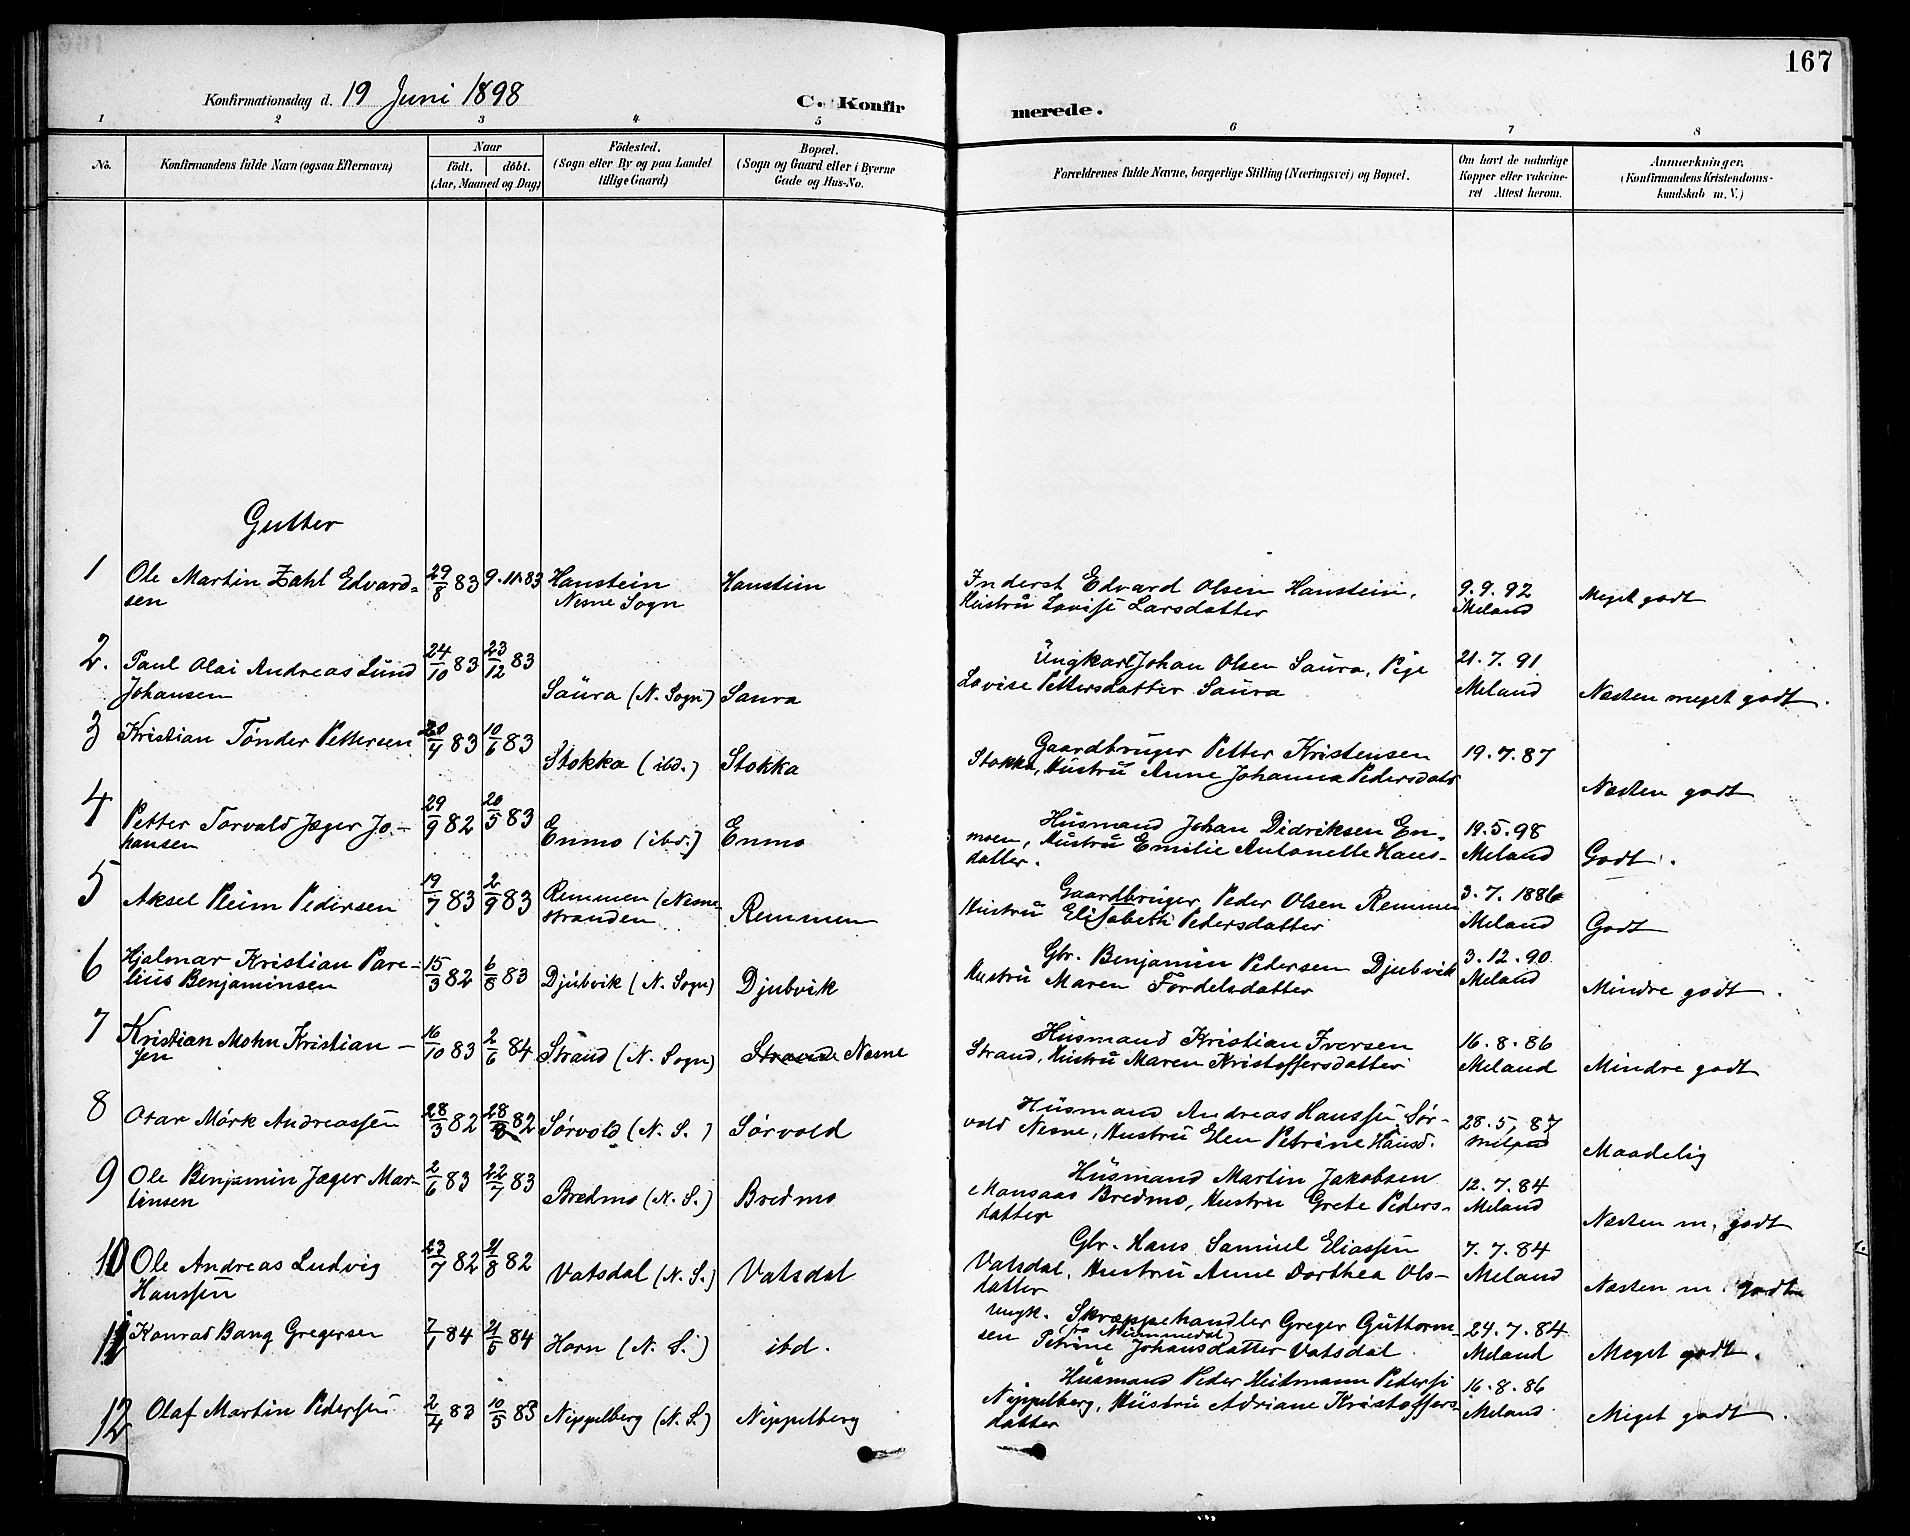 167
Konfirmationsdag d. 19 Juni 1898
C. Konfir
merede.
1 2 3 4 5 6 7 8
No.
Konfirmandens fulde Navn (ogsaa Efternavn)
Naar
født. døbt.
(Aar, Maaned og Dag)
Födested.
(Sogn eller By og paa Landet
tillige Gaard)
Bopæl.
(Sogn og Gaard eller i Byerne
Gade og Hus-No.
Forældrenes fulde Navne, borgerlige Stilling (Næringsvei) og Bopæl.
Om havt de naturlige
Kopper eller vakcine-
ret Attest herom.
Anmærkninger,
(Konfirmandens Kristendoms-
kundskab m. V.)
Gutter
1 Ole Martin Zahl Edvard- 29/8 83 9.11.83 Hanstein Hanstein Inderst Edvard Olsen Hanstein, 9.9.92 Meget godt
sen Nesne Sogn Hustru Lovise Larsdatter Meland
2. Paul Olai Andreas Lund 24/10 83 23/12 83 Ungkarl Johan Olsen Saura, Pige 21.7.91
Johansen Saura (N. Sogn) Saura Lovise Pettersdatter Saura Meland Næsten meget godt.
3 Kristian Tønder Pettersen 20/4 83 10/6 83 Gaardbruger Petter Kristensen 19.7.87
Stokka (ibd.) Stokka Stokka, Hustru Anne Johanna Pedersdatr Næsten godt
4 Petter Torvald Jæger Jo- 29/9 82 20/5 83 Husmand Johan Didriksen En- 19.5.98
hansen Enmo (ibd.) Enmo moen, Hustru Emilie Antonette Hans- Meland Godt.
datter.
5 Aksel Pleim Pedersen 19/7 83 2/9 83 Remmen (Nesne- Gaardbruger Peder Olsen Remmen 3.7.1886
stranden Remmen Hustru Elisabeth Pedersdatter Meland Godt
6 Hjalmar Kristian Pare- 15/3 82 6/8 83 Gbr. Benjamin Pedersen Djubvik 3.12.90
lius Benjaminsen Djubvik (N. Sogn) Djubvik Hustru Maren Fordelsdatter Meland Mindre godt.
7 Kristian Mohn Kristian- 16/10 83 2/6 84 Husmand Kristian Iversen 16.8.86
sen Strand (N. Sogn) Strand Nesne Strand, Hustru Maren Kristoffersdatter Meland Mindre godt
8 Otar Mørk Andreassen 28/3 82 28/8 82 Sørvold (N. S.) Sørvold Husmand Andreas Hanssen Sør- 28.5.87
vold Nesne, Hustru Elen Petrine Hansd. Meland Maadelig
9 Ole Benjamin Jæger Mar- 2/6 83 22/7 83 Husmand Martin Jakobsen 12.7.84
tinsen Bredmo (N. S.) Bredmo Mansaas Bredmo, Hustru Grete Peders- Meland Næsten m. godt
datter
10 Ole Andreas Ludvig 23/7 82 21/8 82 Gbr. Hans Samuel Eliassen 7.7.84
Hanssen Vatsdal (N. S.) Vatsdal Vatsdal, Hustru Anne Dorthea Ols- Meland Næsten m. godt
datter
11 Konrad Bang Gregersen 7/1 84 21/5 84 Horn (N. S.) ibd. Ungk. Skræppehandler Greger Guttorm- 24.7.84
sen (fra Nummedal) Petrine Johansdatter Vatsdal. Meland Meget godt.
12 Olaf Martin Pedersen 2/4 83 10/5 83 Husmand Peder Heitmann Pederse 16.8.86
Nippelberg (N. S.) Nippelberg Nippelberg, Hustru Adriane Kristoffers- Meland Meget godt.
datter